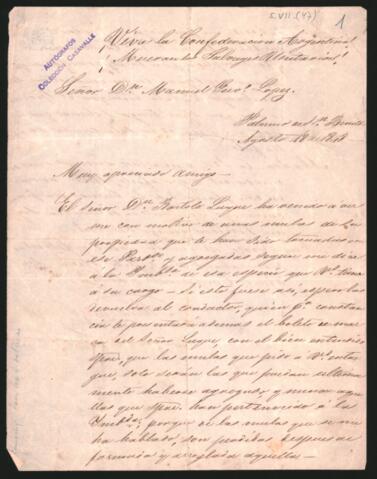 S.VII.(47)
1
AUTÓGRAFOS
COLECCIÓN CASAVALLE
¡Viva la Confederacion Argentina!
¡Mueran los Salvages Unitarios!
Señor Dn. Manuel López.
Palermo de Sn. Benito
Agosto 18 de 1848
Muy apreciado Amigo
El Señor Dn. Bartolo ha venido a
me con motivo de unas mulas de su
propiedad que le han sido tomadas en
ese y agregadas segun me dice
à la de esa especie que Vd. tiene
à su cargo. Si esto fuese asi, espero las
devuelva al conductor, quien pa. constan
cia le presentarà ademas el boleto de mar
ca del Señor con el bien entendido
que las mulas que pido à Vd. entre
gue, solo serán las que puedan ultima
mente haberse agregado, y nunca aque
llas que han pertenecido à la
porque de las mulas que se me
ha hablado, son perdidas despues de
formada y arreglada aquella